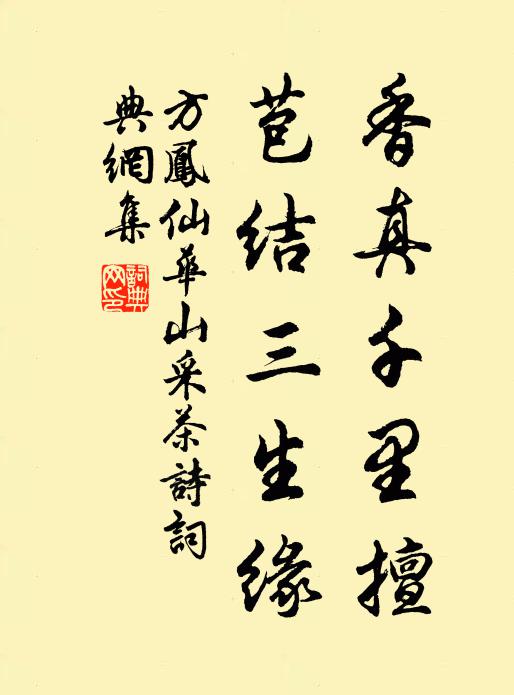 香真千里擅
苞结三生缘
方鳳仙華山采茶詩詞
典網集
詞典網印